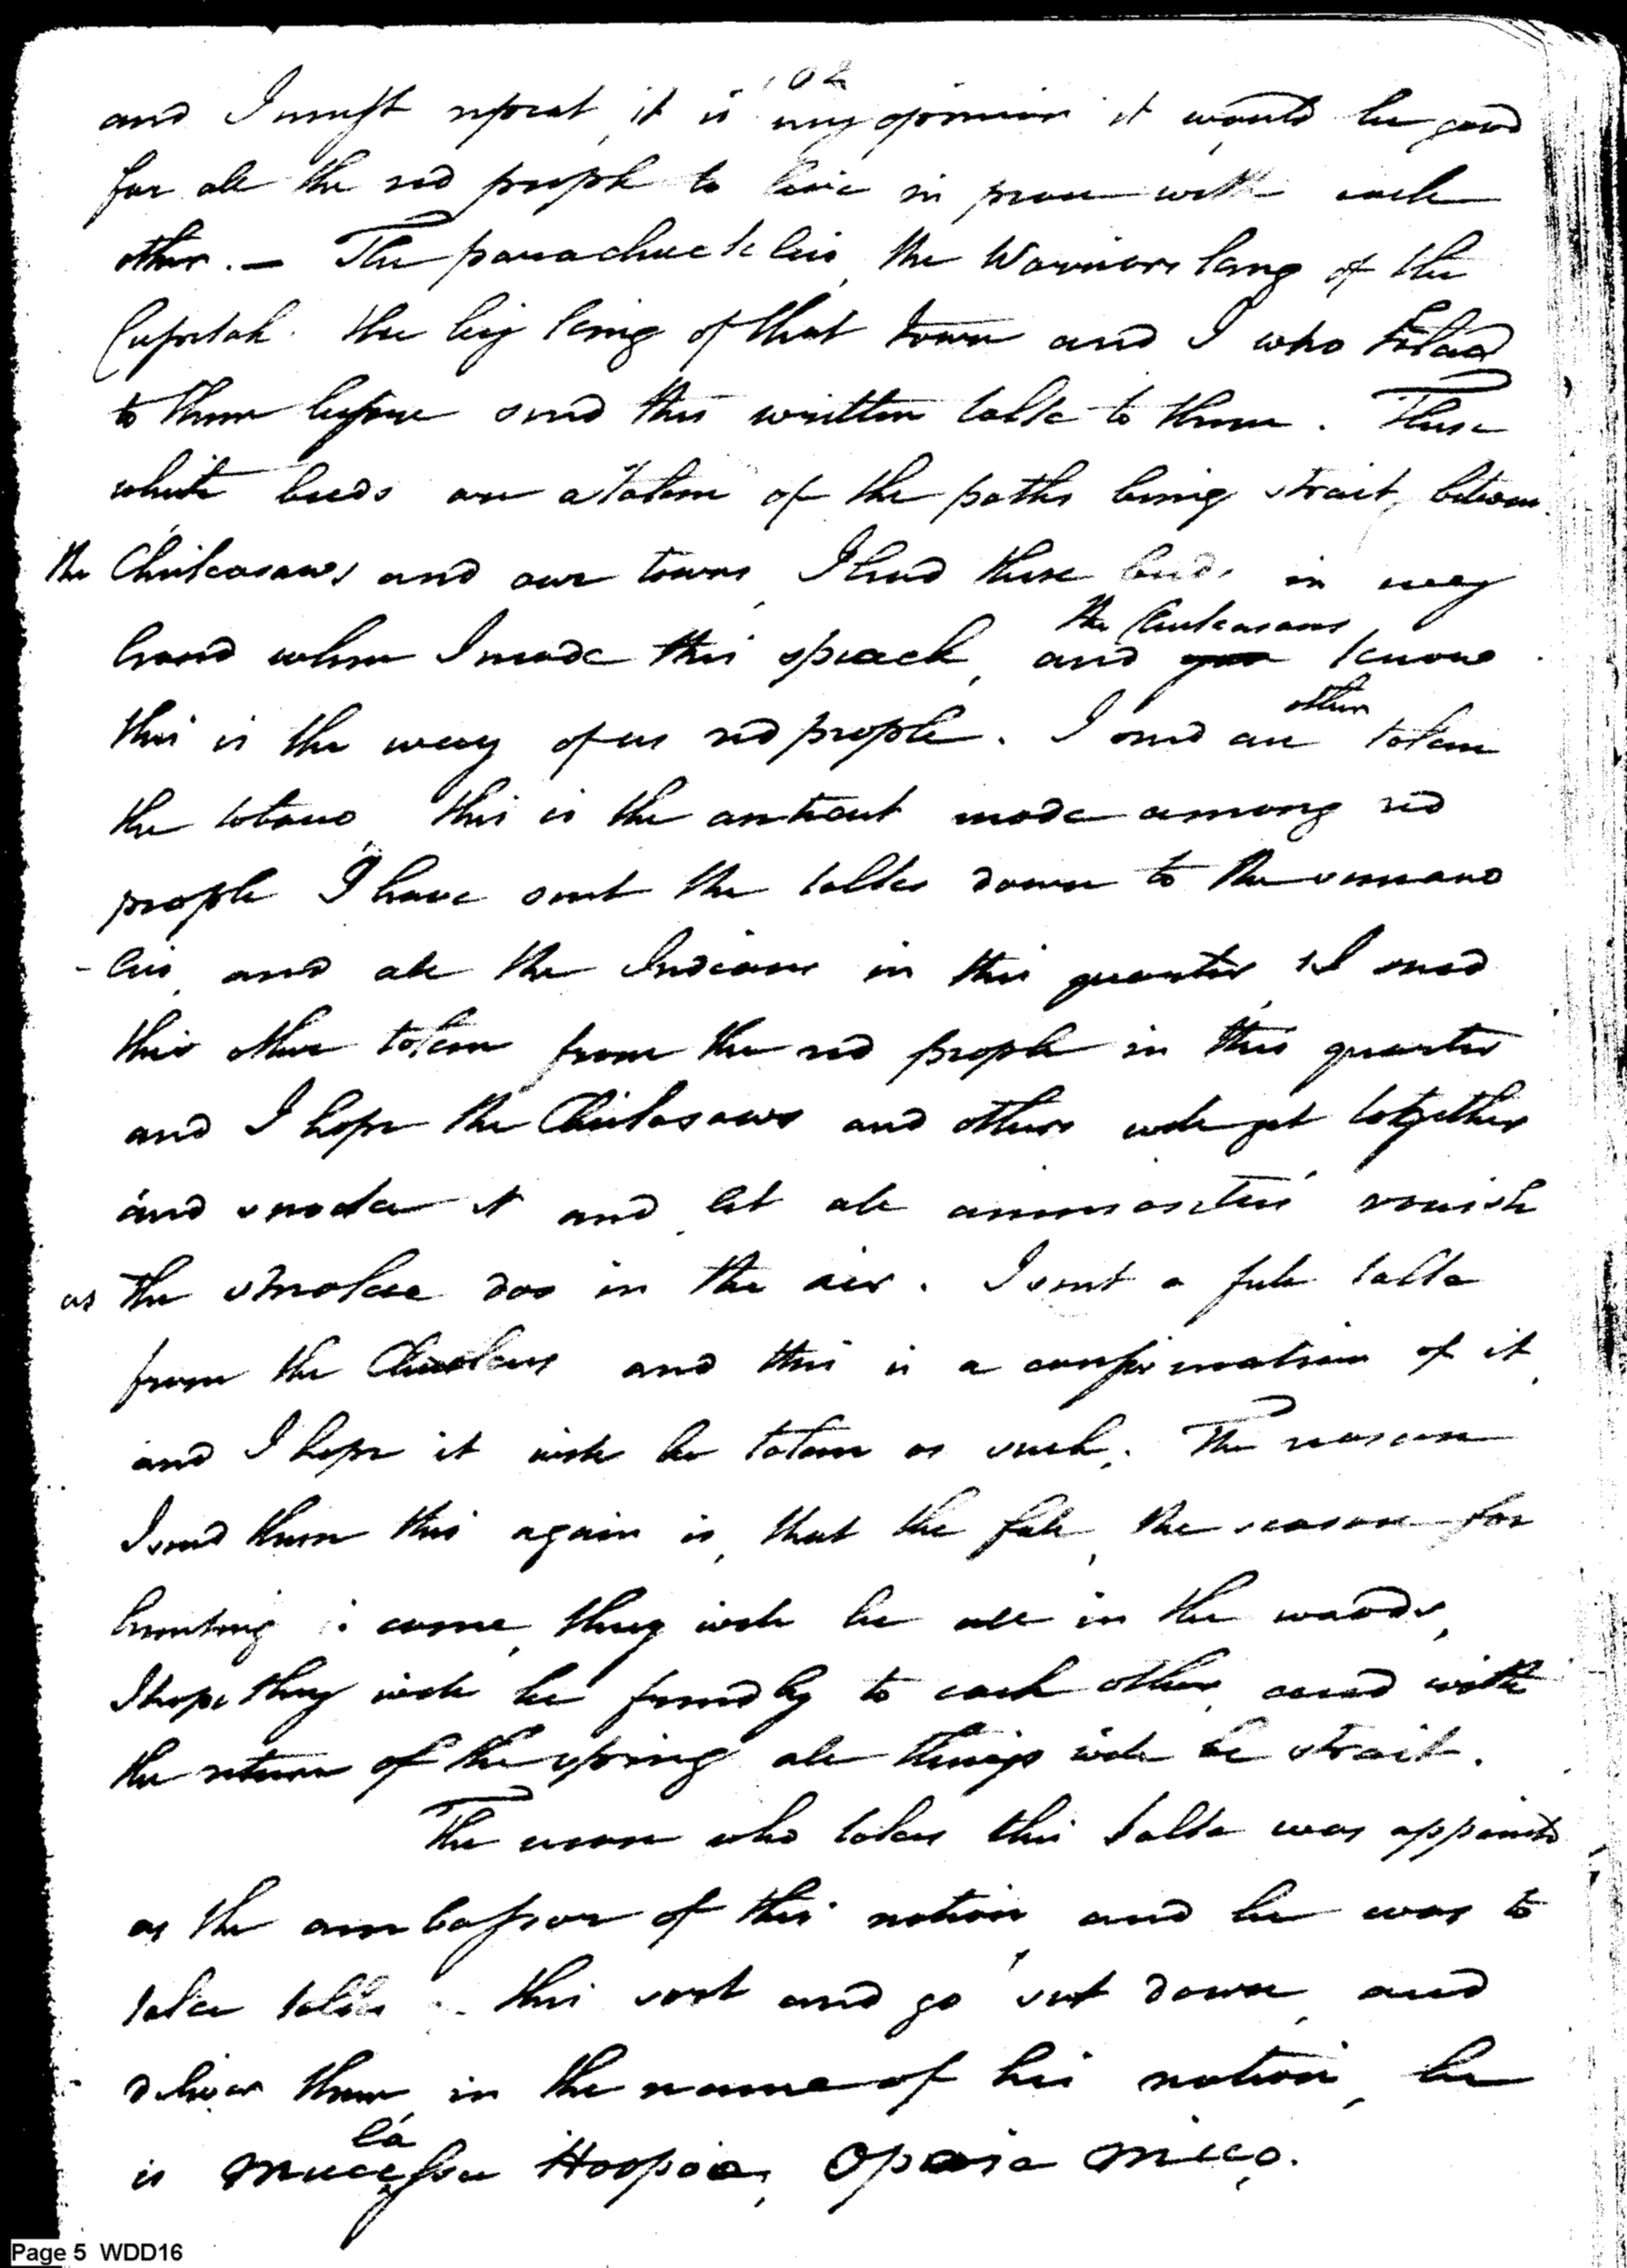 102
and I must repeat, it is my opinion it would be good
for all the red people to live in peace with each
other. — The parachuckleis, the Warriors king of the
Cupetah. the big king of that town and I who talked
to them before send this written talk to them. These
white beeds are a token of the paths being strait, between
the Chickasaws and our towns, I had these beeds in my
hand when I made this speach, and the Chickasaws know
this is the way of us red people. I send an other token
the tobaco, this is the antient mode among red
people I have sent the talks down to the semano
-lies, and all the Indians in this quarter, & I send
this other token from the red people in this quarter
and I hope the Chickasaws and others will get together
and smoke it and, let all animosities vanish
as the smoke dos in the air. I sent a full talk
from the and this is a confirmation of it,
and I hope it will be taken as such. The reason
I send them this again is, that the fall, the season for
hunting is come, they will be all in the woods,
I hope they will be friendly to each other, and with
the return of the spring all things will be strait.
The man who takes this talk was appointed
as the ambassor of this nation, and he was to
take talks this sort and go set down, and
deliver them, in the name of his nation, he
is Hoopoie, Opoie micco.
Page 5 WDD16